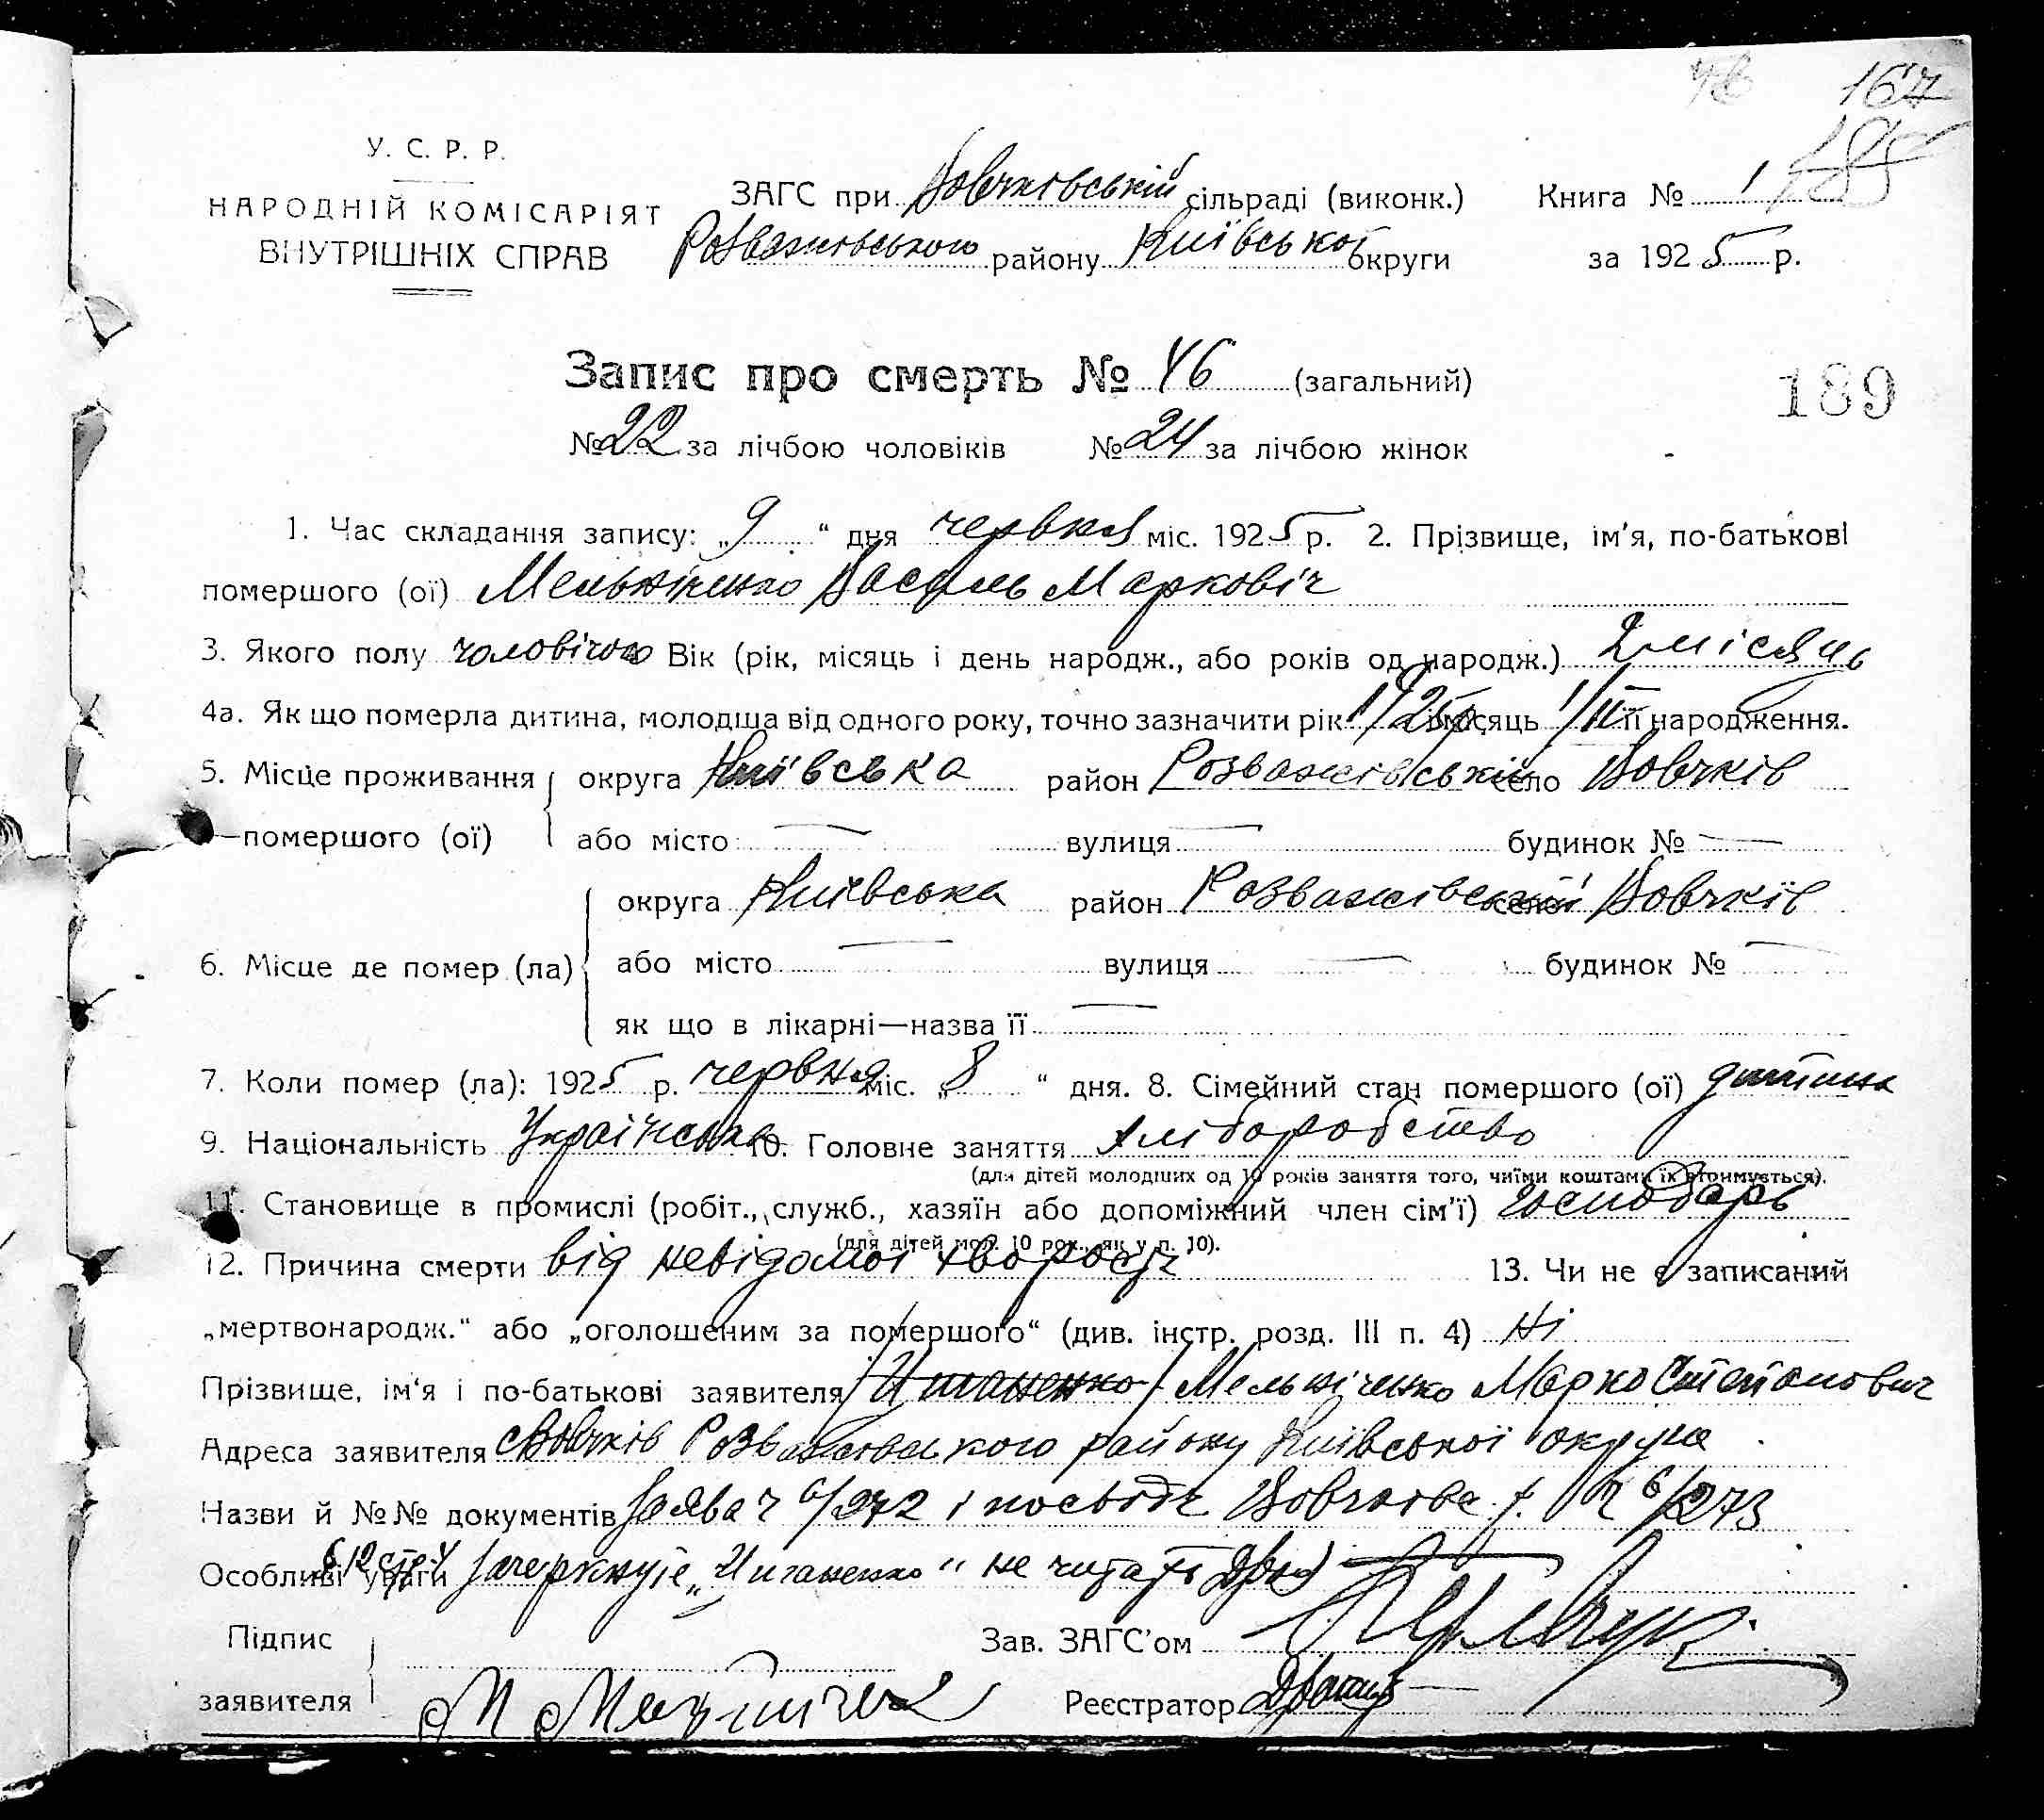 167
У. С. Р. Р.
НАРОДНІЙ КОМІСАРІЯТ
ВНУТРІШНІХ СПРАВ
ЗАГС при Вовчківській сільраді (виконк.) Книга № 1
Розважівського району Київської округи за 1925 р.
Запис про смерть № 46 (загальний)
189
№ 22 за лічбою чоловіків № 24 за лічбою жінок
1. Час складання запису: „9“ дня червня міс. 1925 р. 2. Прізвище, ім'я, по-батькові
помершого (ої) Мельніченко Василь Марковіч
3. Якого полу чоловічого Вік (рік, місяць і день народж., або років од народж.) 2 місяць
4а. Як що померла дитина, молодша від одного року, точно зазначити рік 1925 р. і місяць її народження.
5. Місце проживання округа Київська район Розважівський село Вовчків
помершого (ої) або місто — вулиця — будинок № —
округа Київська район Розважівський село Вовчків
6. Місце де помер (ла) або місто — вулиця — будинок № —
як що в лікарні—назва її —
7. Коли помер (ла): 1925 р. червня міс. „8“ дня. 8. Сімейний стан помершого (ої) дитина
9. Національність Українська 10. Головне заняття хліборобство
(для дітей молодших од 10 років заняття того, чиїми коштами їх втримується).
11. Становище в промислі (робіт., служб., хазяїн або допоміжний член сім'ї) господарь
(для дітей мол. 10 рок., як у п. 10).
12. Причина смерти від невідомої хворости 13. Чи не є записаний
„мертвонародж.“ або „оголошеним за помершого“ (див. інстр. розд. III п. 4) ні
Прізвище, ім'я і по-батькові заявителя Циганенко Мельніченко Марко Степанович
Адреса заявителя с Вовчків Розважівського району Київської округа
Назви й №№ документів Заява ч 6/272 і посвідч Вовчківс. ч 6/273
Особливі уваги В 12 стр. зачеркнуте „Циганенко“ не читать
Підпис
заявителя
Зав. ЗАГС'ом
Реєстратор